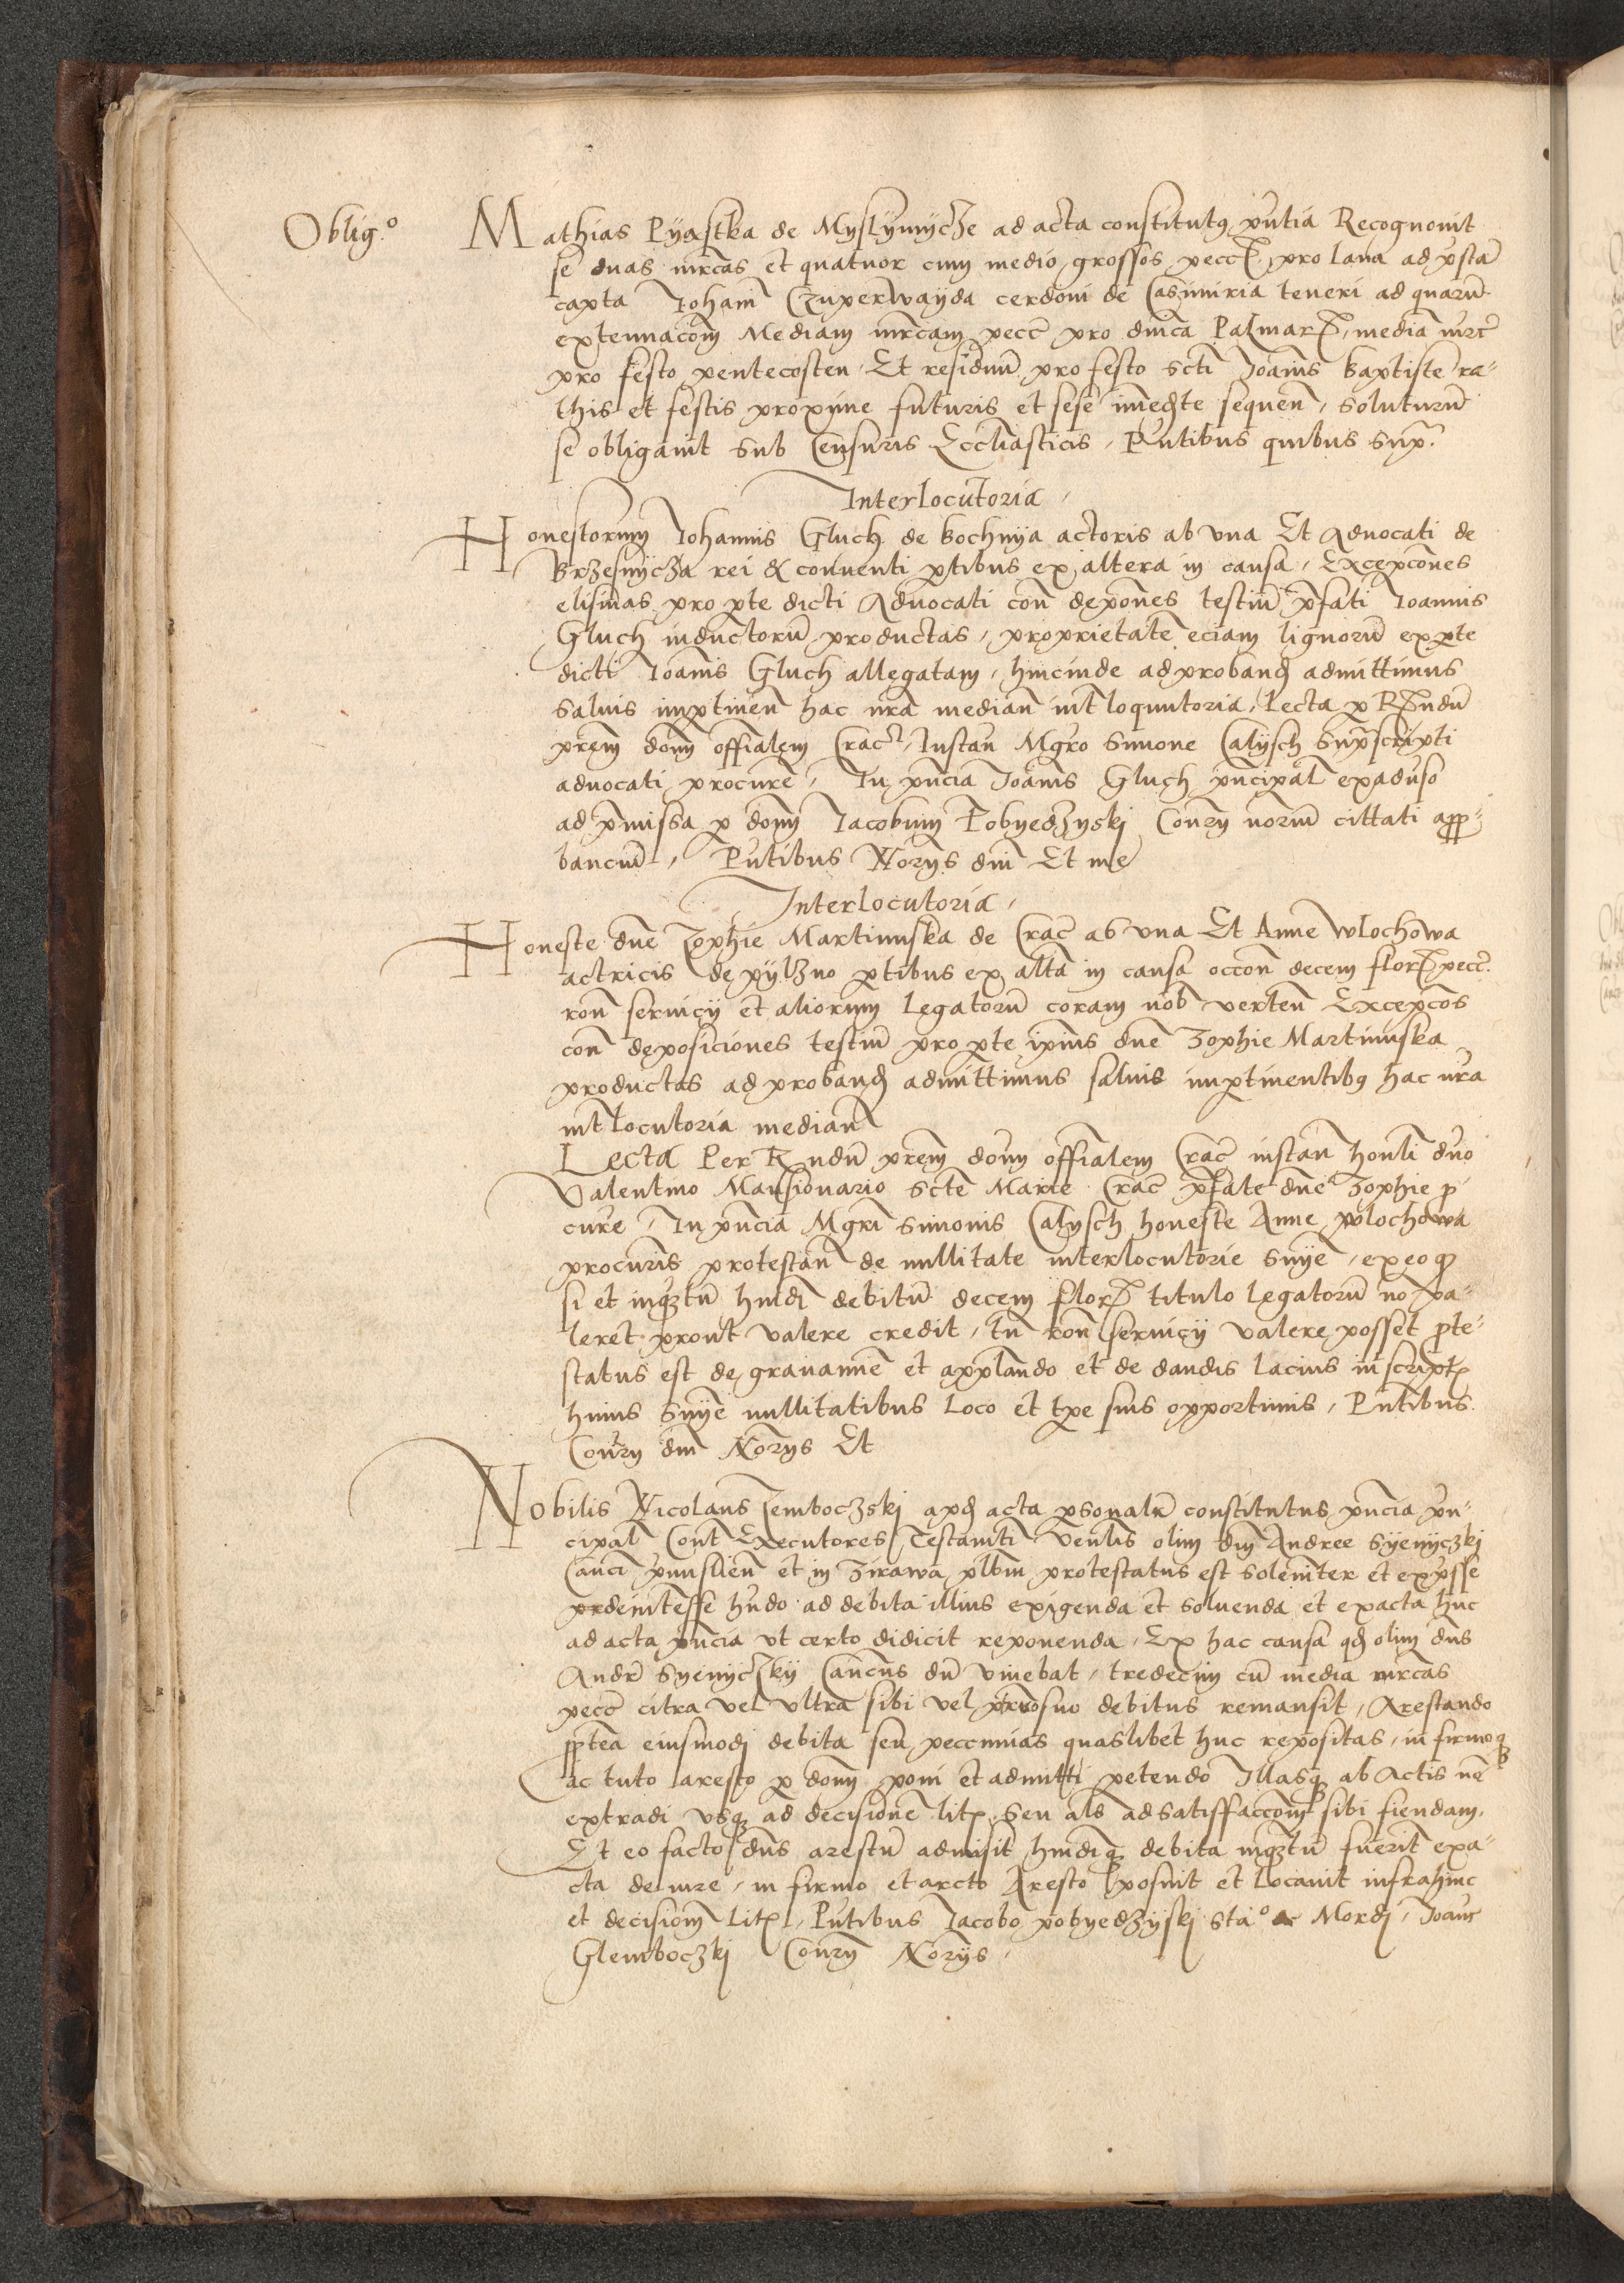 Oblig.o
Mathias Pyastka de Myslymycze ad acta constitutus pn̄tia Recognouit
se duas mrcas et quatuor cum medio grossos pecc̄ pro lana ad p̄sta
capta Johani Czuperwayda cerdoni de Casimiria teneri ad quarū
extenuacōm Mediam mrcam pecc̄ pro dn̄ica Palmar media mrc̄
pro festo pentecosten Et residuū pro festo Scti Joānis Baptiste ra-
this et festis proxime futuris et sese īmedte sequen̄ soluturū
se obligauit sub Censuris Eccliasticis Pn̄tibus quibus Sup.
Interlocutoria
Honestorum Johannis Gluch de Bochnya actoris ab vna Et Aduocati de
Brzesnycza rei & conuenti p̄tibus ex altera in causa Excepcōnes
elisiuas pro p̄te dicti Aduocati con̄ depōnes testiū p̄fati Joannis
Gluch inductorū productas proprietatē eciam lignorū ex p̄te
dicti Joānis Gluch allegatam hincinde ad proband admittimus
Saluis imp̄tinen̄ hac nrā median̄ int̄loquutoria Lecta p R̄ndū
prēm dom̄ offialem Crac̄ Instan̄ Mgrō Simone Calysch Sup̄scripti
aduocati procure In pn̄cia Joānis Gluch pn̄cipal̄ ex aduso
ad p̄missa p dom̄ Jacobum Pobyedzyski Cōury norm̄ cittati app-
bancīū Pn̄tibus Nōrys dn̄i Et me
Interlocutoria
Honeste dn̄e Zophie Martinuska de Crac̄ ab vna Et Anne wlochowa
actricis de pylzno p̄tibus ex altā in causa occōn decem flor pecc̄
rōn seruicy et aliorum legatorū coram nob̄ verten̄ Excepcōs
con̄ deposiciones testiū pro p̄te ipius dn̄e Zophie Martinuska
productas ad proband admittimus saluis imp̄tinentibus hac nrā
int̄locutoria median̄
Lecta Per R̄ndū prēm dom̄ offialem Crac̄ instan̄ honli dn̄o
Valentino Mansionario Scte Marie Crac̄ p̄fate dn̄e Zophie p
cure In pn̄cia Mgri Simonis Calysch honeste Anne wlochowa
procuris protestan̄ de nullitate interlocutorie Snye ex eo q
si et inqztū hmdi debitū decem flor titulo legatorū nō va-
leret prout valere credit tn̄ rōn seruicy valere posset pte-
status est de grauamie et applando et de dandis lacius in script
huius Snye nullitatibus Loco et tpe suis opportunis Pn̄tibus
Coury dn̄i Nōrys Et
Nobilis Nicolaus Zemboczski apd acta psonalr̄ constitutus pn̄cia pn̄-
cipal̄ Cont Executores Testamti Venlis olim dn̄i Andree Syenyczkj
Canci et in Zirawa plbn̄i protestatus est Solemter et exp̄sse
hndo ad debita illius exigenda et soluenda et exacta huc
ad acta pn̄cia vt certo didicit reponenda Ex hac causa qd olim dn̄s
Andr̄ Syenyczky Cancns dū viuebat tredecim cū media mrcas
pecc̄ citra vel vltra sibi vel debitus remansit Arestando
pp̄tea eiusmodj debita seu peccunias quaslibet huc repositas in firmoq
ac tuto aresto p dom̄ poni et admitti petendo Illasq ab Actis nē
extradi vsq ad decisionē lit seu als ad satisffaccōm sibi fiendam
Et eo facto dn̄s arestū admisit hmdiq debita inqztū fuerit exa-
cta de iure in firmo et arcto Aresto posuit et Locauit infra hinc
et decisiōm lit Pn̄tibus Jacobo pobyedzyskj Joan̄e
Glemboczkj Coury Nōrys